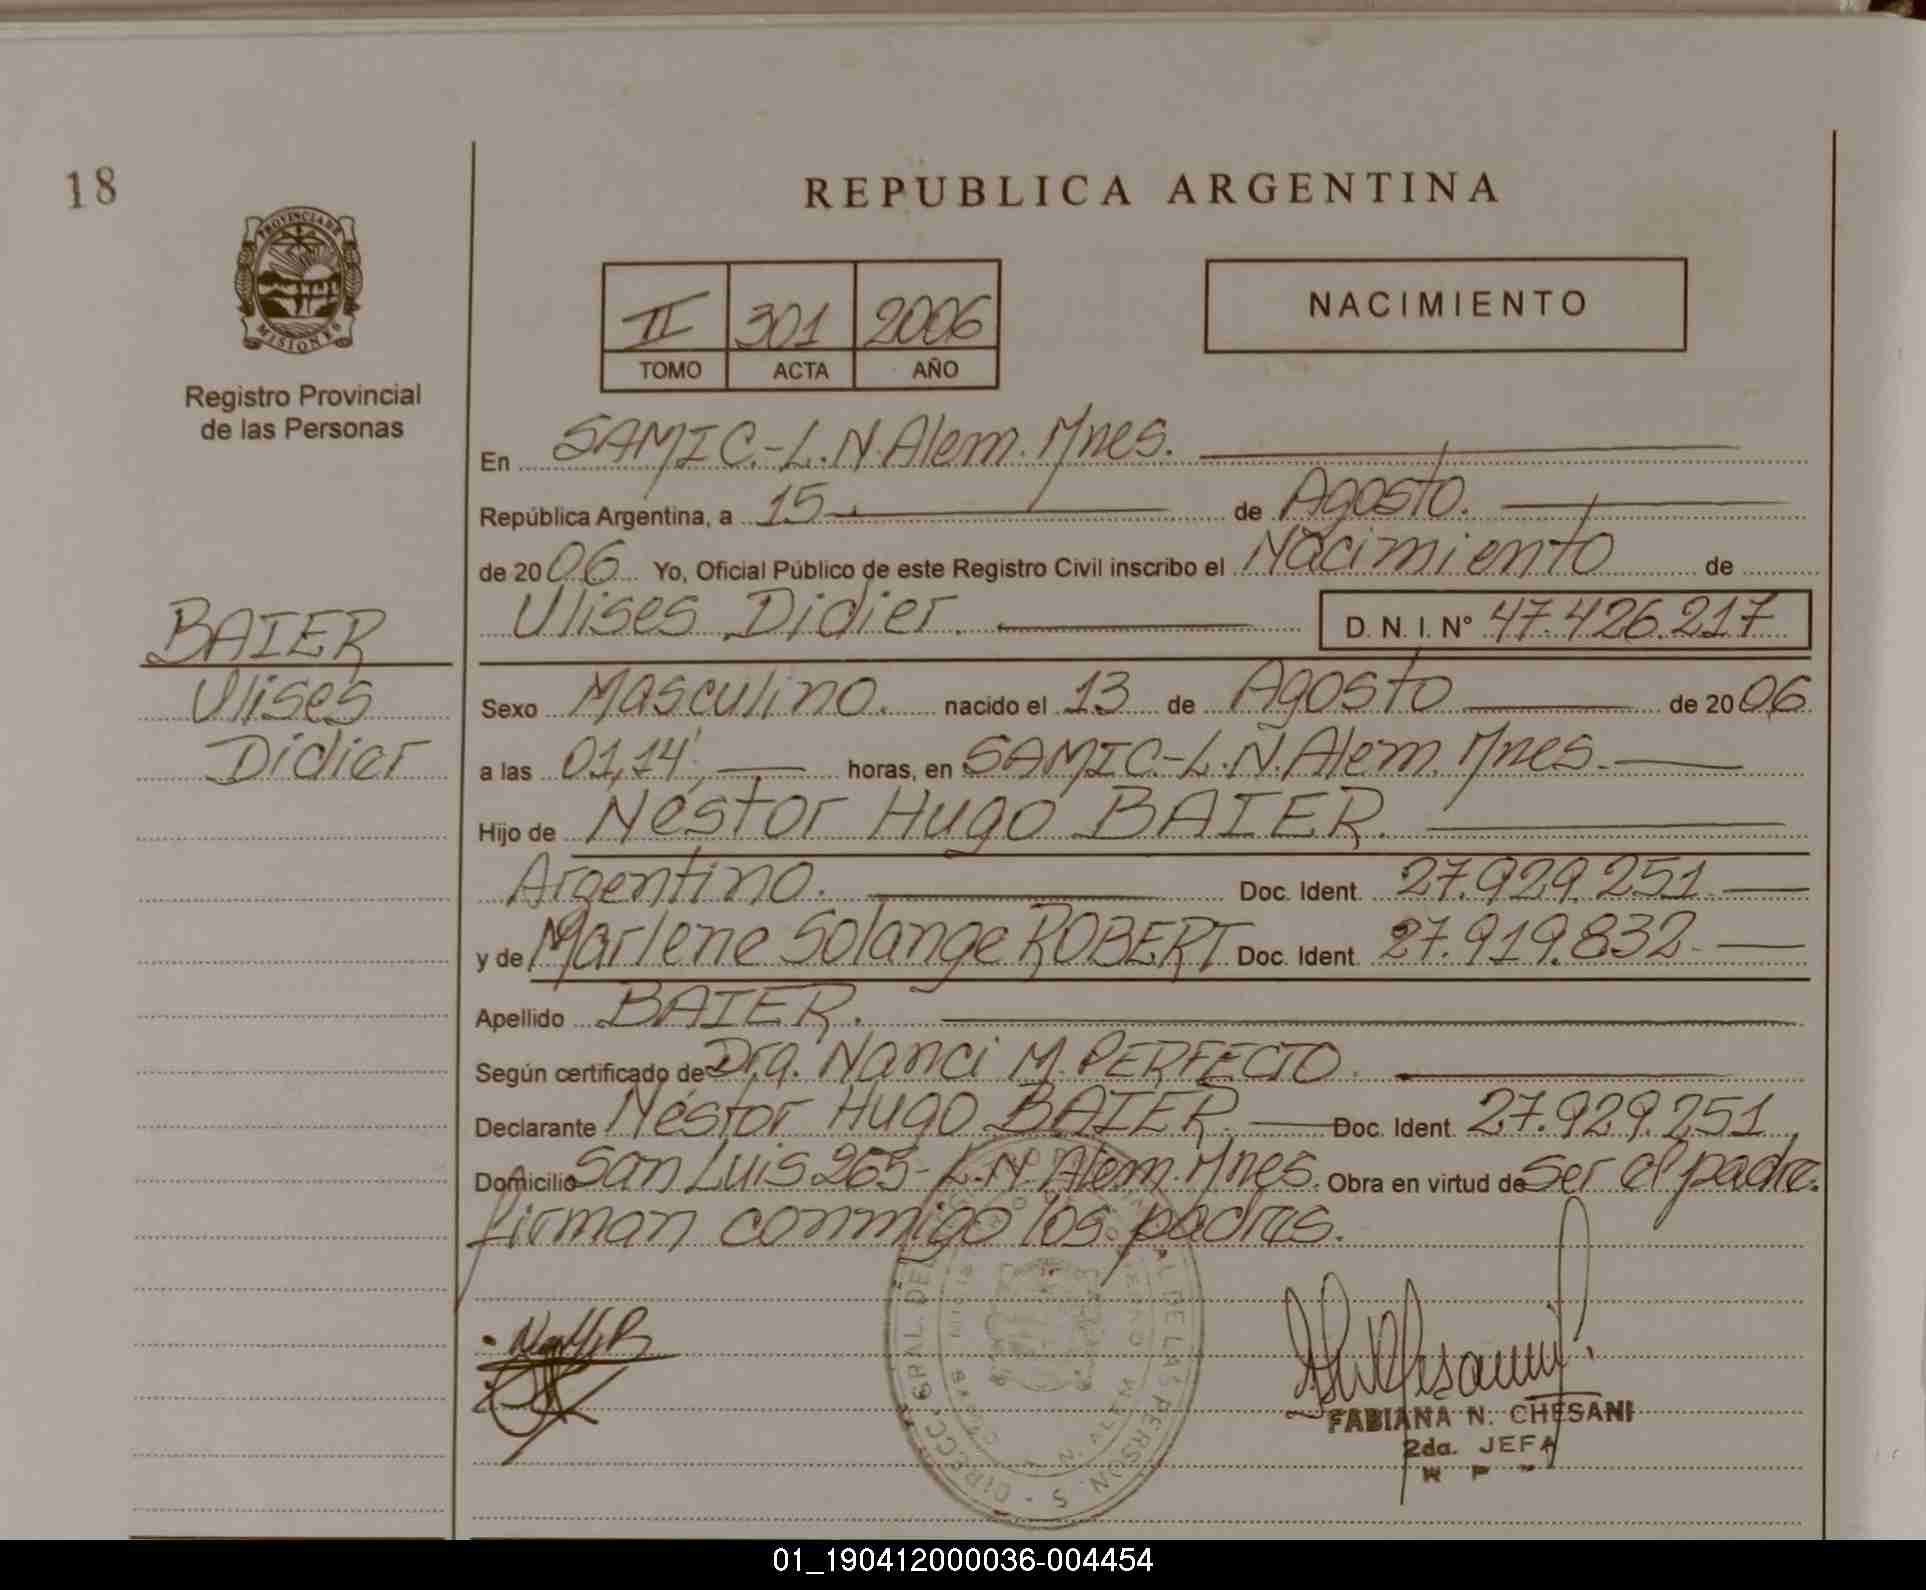 18
REPUBLICA ARGENTINA
PROVINCIA DE
MISIONES
Registro Provincial
de las Personas
II 301 2006
TOMO ACTA AÑO
NACIMIENTO
En SAMIC.-L.N.Alem.Mnes.
República Argentina, a 15 de Agosto.
de 2006 Yo, Oficial Público de este Registro Civil inscribo el Nacimiento de
Ulises Didier. D. N. I. Nº 47.426.217
BAIER
Ulises
Didier
Sexo Masculino. nacido el 13 de Agosto de 2006.
a las 01,14' horas, en SAMIC.-L.N.Alem.Mnes.
Hijo de Néstor Hugo BAIER.
Argentino. Doc. Ident. 27.929.251
y de Marlene Solange ROBERT Doc. Ident. 27.919.832
Apellido BAIER.
Según certificado de Dra. Nanci M. PERFECTO.
Declarante Néstor Hugo BAIER. Doc. Ident. 27.929.251
Domicilio San Luis 265-L.N.Alem.Mnes. Obra en virtud de Ser el padre.
firman conmigo los padres.
FABIANA N. CHESANI
2da. JEFA
01_190412000036-004454